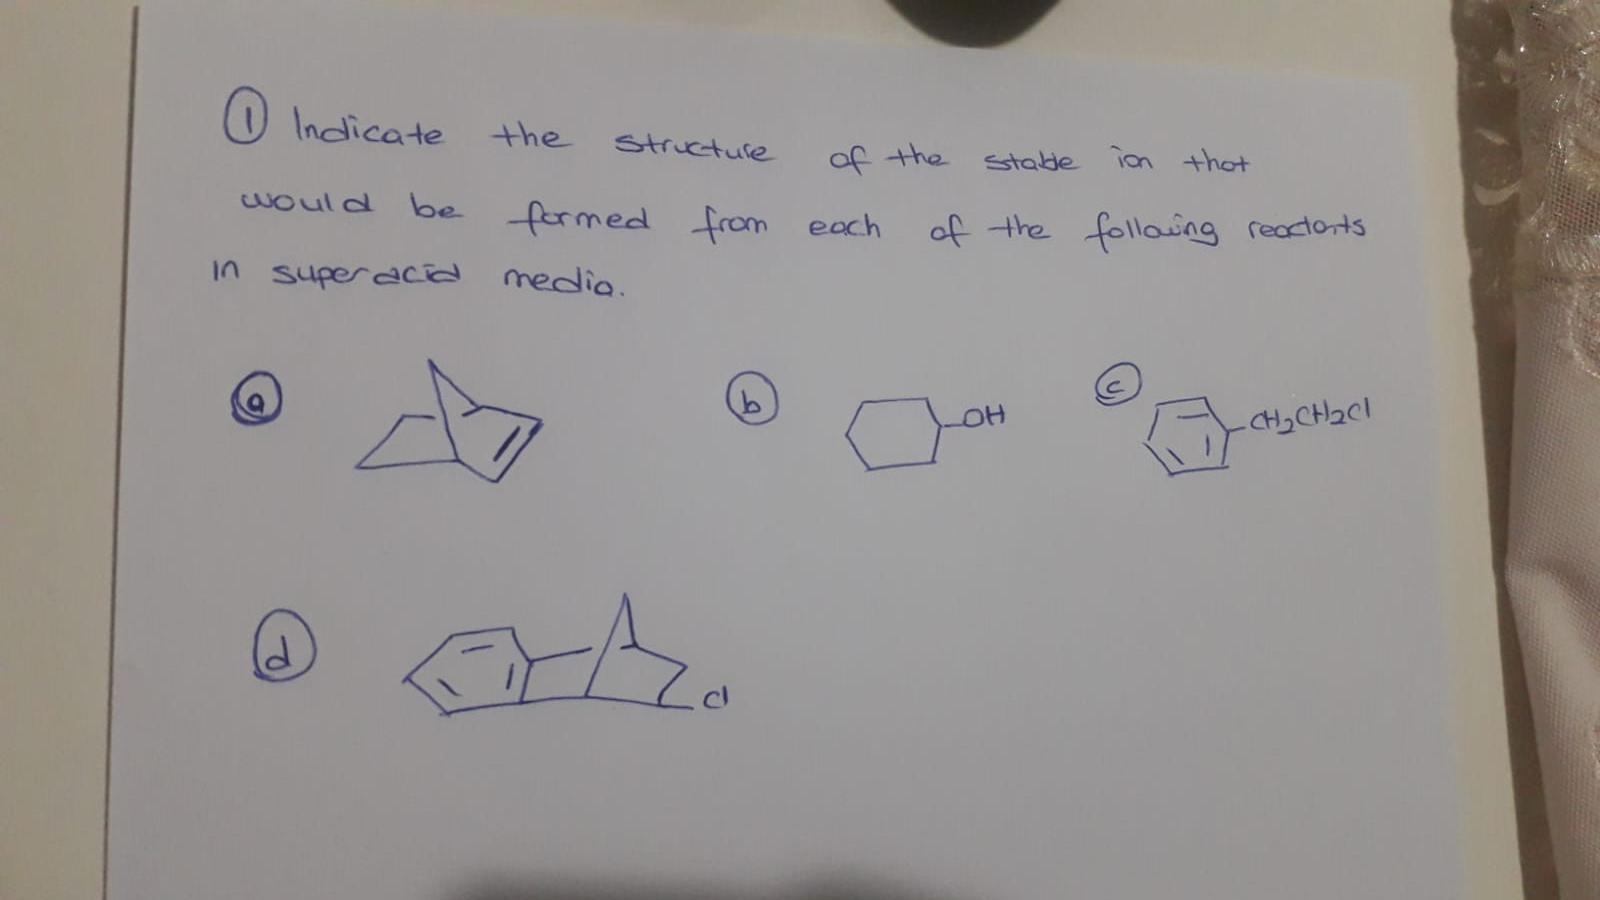 ① Indicate the structure of the stable ion that
would be formed from each of the following reactants
in superacid media.
ⓐ ⓑ -OH ⓒ -CH₂CH₂Cl
ⓓ Cl